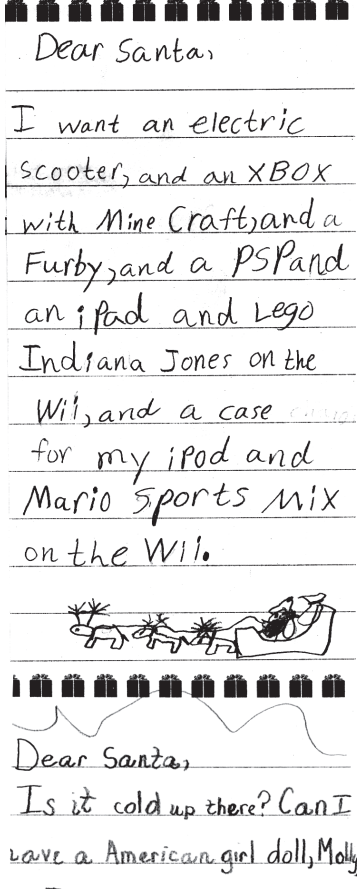 Dear Santa,
I want an electric
scooter, and an XBOX
with Mine Craft, and a
Furby, and a PSP and
an iPad and Lego
Indiana Jones on the
Wii, and a case
for my iPod and
Mario Sports Mix
on the Wii.
Dear Santa,
Is it cold up there? Can I
have a American girl doll, Molly